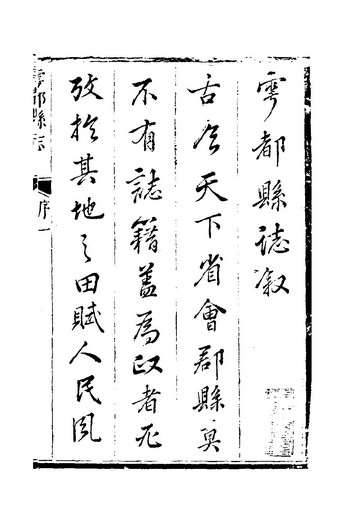 雩都縣誌叙
古今天下省會郡縣莫
不有誌籍蓋為政者左
攷於其地之田賦人民風
雩都縣志
序
一